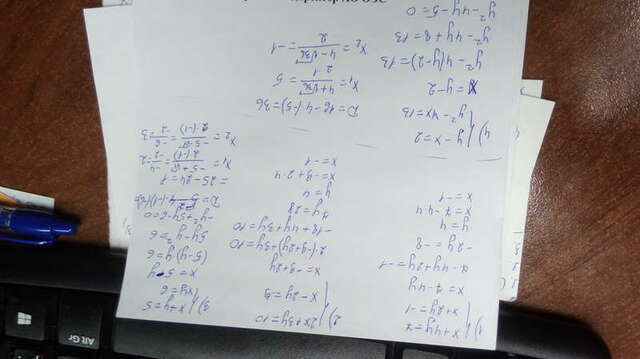 1) { x+4y=7
x+2y=-1
x=7-4y
7-4y+2y=-1
-2y=-8
y=4
x=7-4·4
x=-1
2) { 2x+3y=10
x-2y=-9
x=-9+2y
2(-9+2y)+3y=10
-18+4y+3y=10
7y=28
y=4
x=-9+2·4
x=-1
3) { x+y=5
xy=6
x=5-y
(5-y)y=6
5y-y²=6
-y²+5y-6=0
=25-24=1
x₁=
x₂=
4) { y-x=2
y²-4x=13
x=y-2
y²-4(y-2)=13
y²-4y+8=13
y²-4y-5=0
D=16-4·(-5)=36
x₁=(4+√36)/2·1=5
x₂=(4-√36)/2=-1
Alt Gr